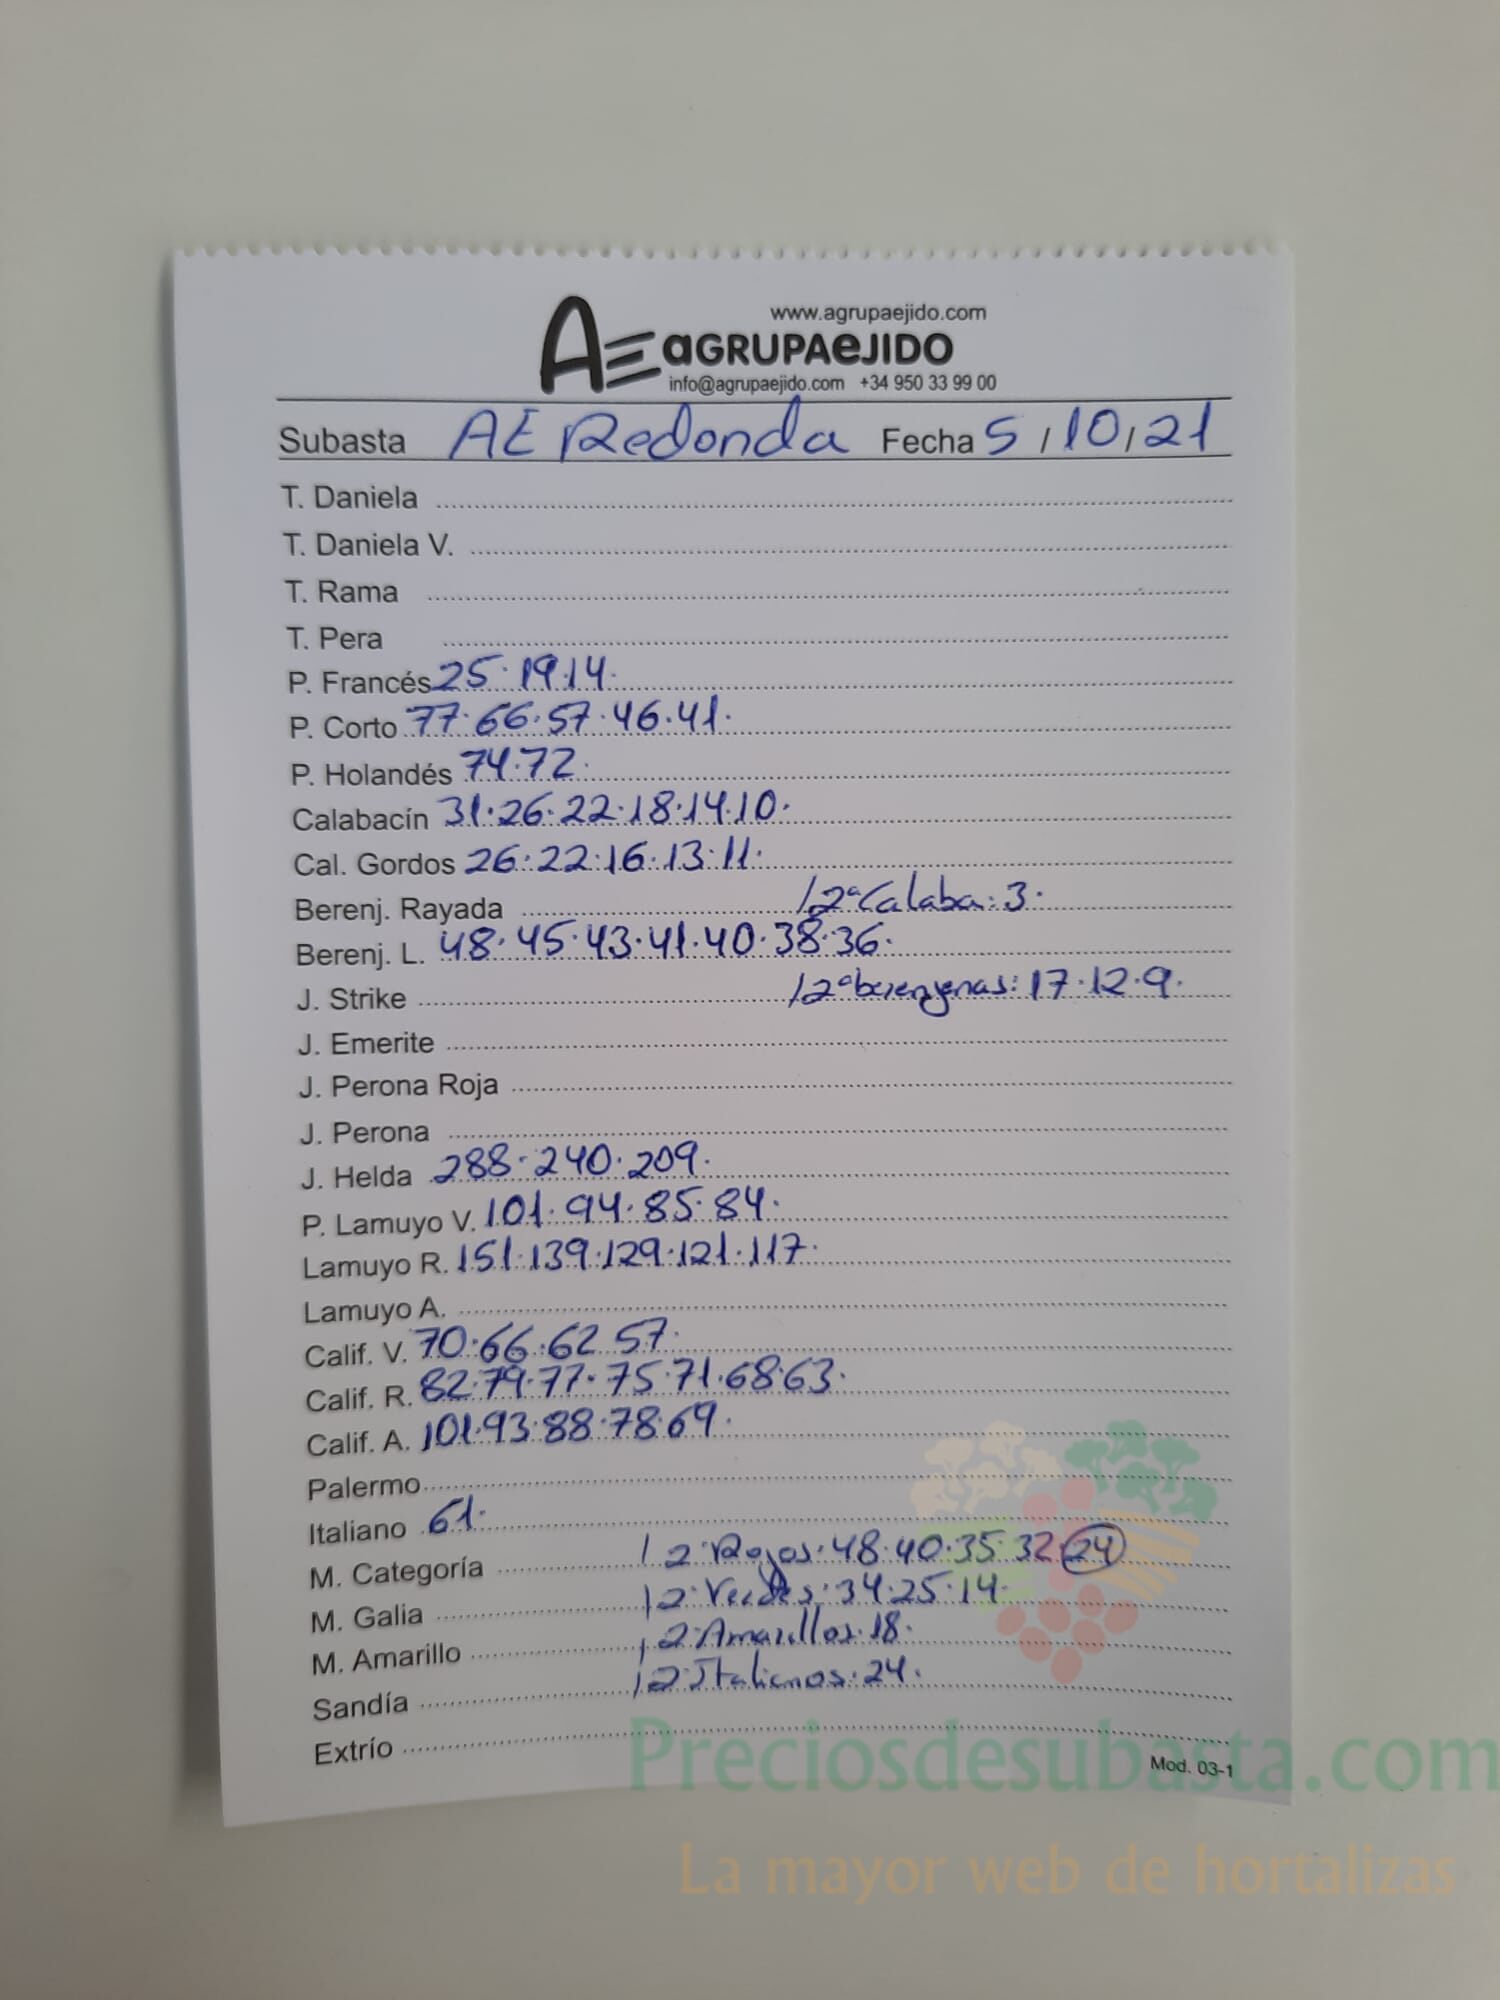 www.agrupaejido.com
AE aGRUPAeJIDO
info@agrupaejido.com +34 950 33 99 00
Subasta AE Redonda Fecha 5/10/21
T. Daniela
T. Daniela V.
T. Rama
T. Pera
P. Francés 25·19·14·
P. Corto 77·66·57·46·41·
P. Holandés 74·72
Calabacín 31·26·22·18·14·10·
Cal. Gordos 26·22·16·13·11·
Berenj. Rayada /2ª Calaba: 3·
Berenj. L. 48·45·43·41·40·38·36·
J. Strike /2ª berenjenas: 17·12·9·
J. Emerite
J. Perona Roja
J. Perona
J. Helda 288·240·209·
P. Lamuyo V. 101·94·85·84·
Lamuyo R. 151·139·129·121·117·
Lamuyo A.
Calif. V. 70·66·62·57·
Calif. R. 82·79·77·75·71·68·63·
Calif. A. 101·93·88·78·69·
Palermo
Italiano 61·
M. Categoría /2ª Rojos: 48·40·35·32·24
M. Galia /2ª Verdes: 34·25·14·
M. Amarillo /2ª Amarillos: 18·
Sandía /2ª Italianos: 24·
Extrío
Mod. 03-1
Preciosdesubasta.com
La mayor web de hortalizas